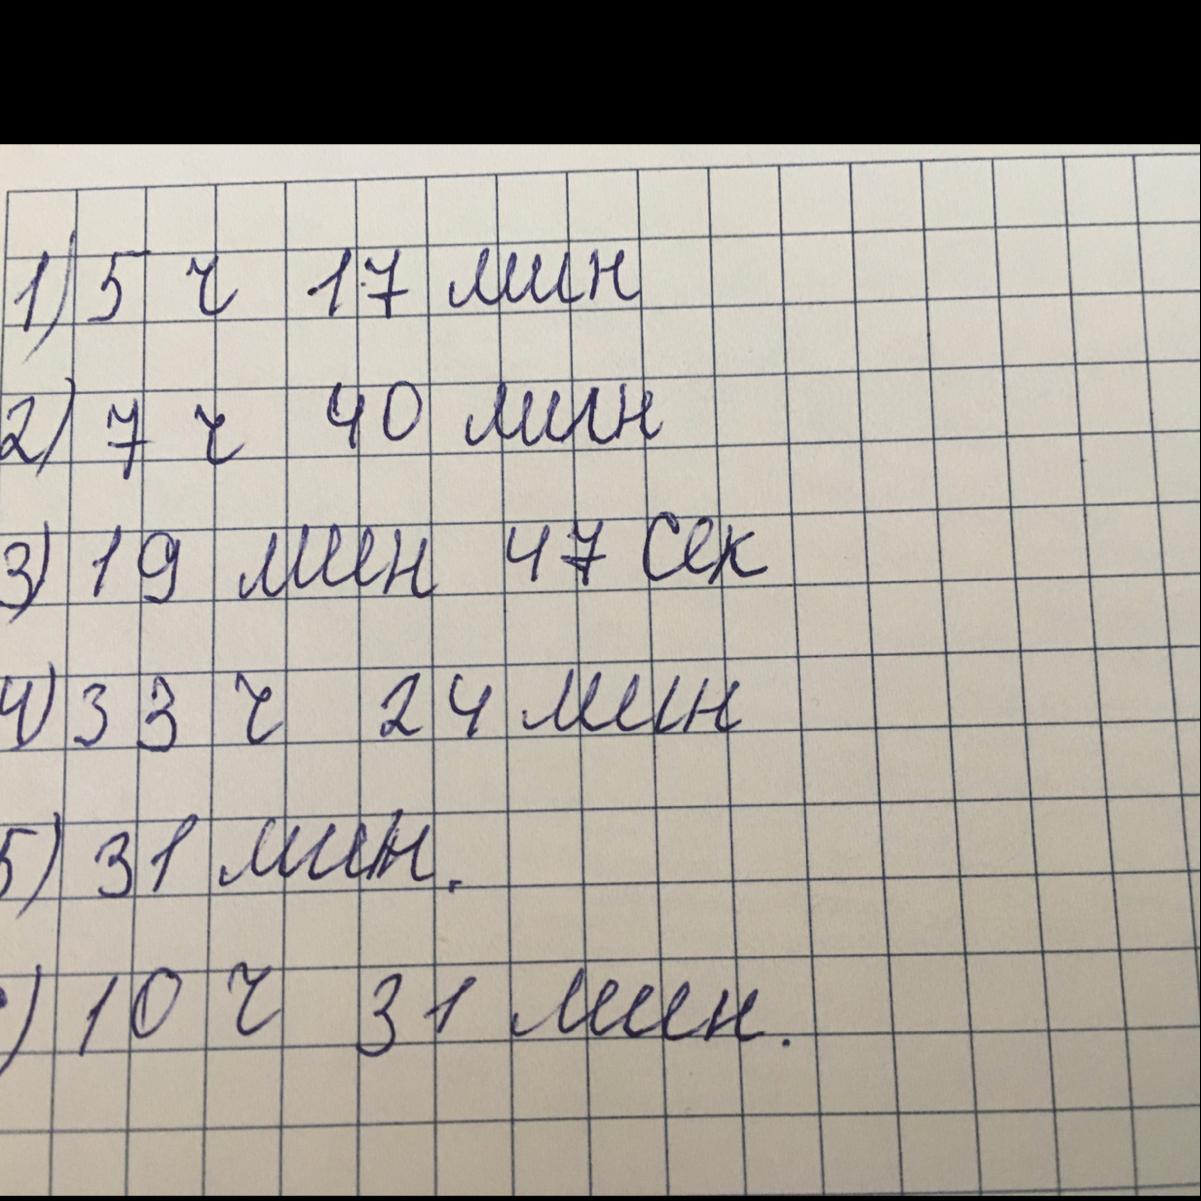 1) 5 ч 17 мин
2) 7 ч 40 мин
3) 19 мин 47 сек
4) 33 ч 24 мин
5) 31 мин.
) 10 ч 31 мин.